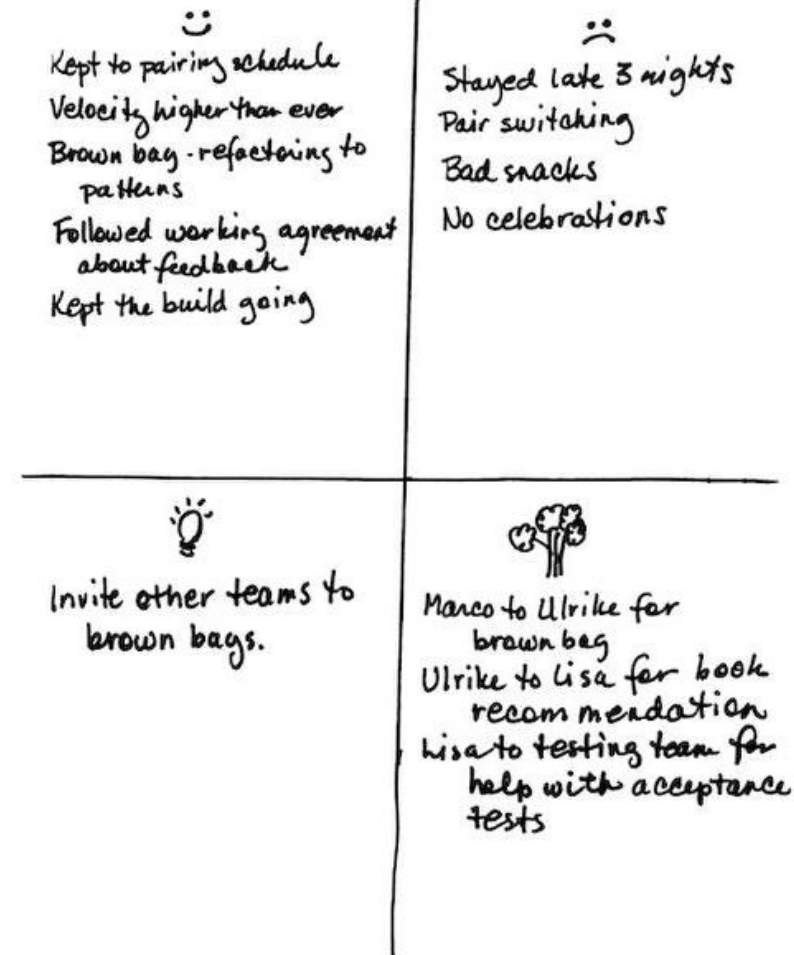 Kept to pairing schedule
Velocity higher than ever
Brown bag - refactoring to
patterns
Followed working agreement
about feedback
Kept the build going
Stayed late 3 nights
Pair switching
Bad snacks
No celebrations
Invite other teams to
brown bags.
Marco to Ulrike for
brown bag
Ulrike to Lisa for book
recommendation
Lisa to testing team for
help with acceptance
tests